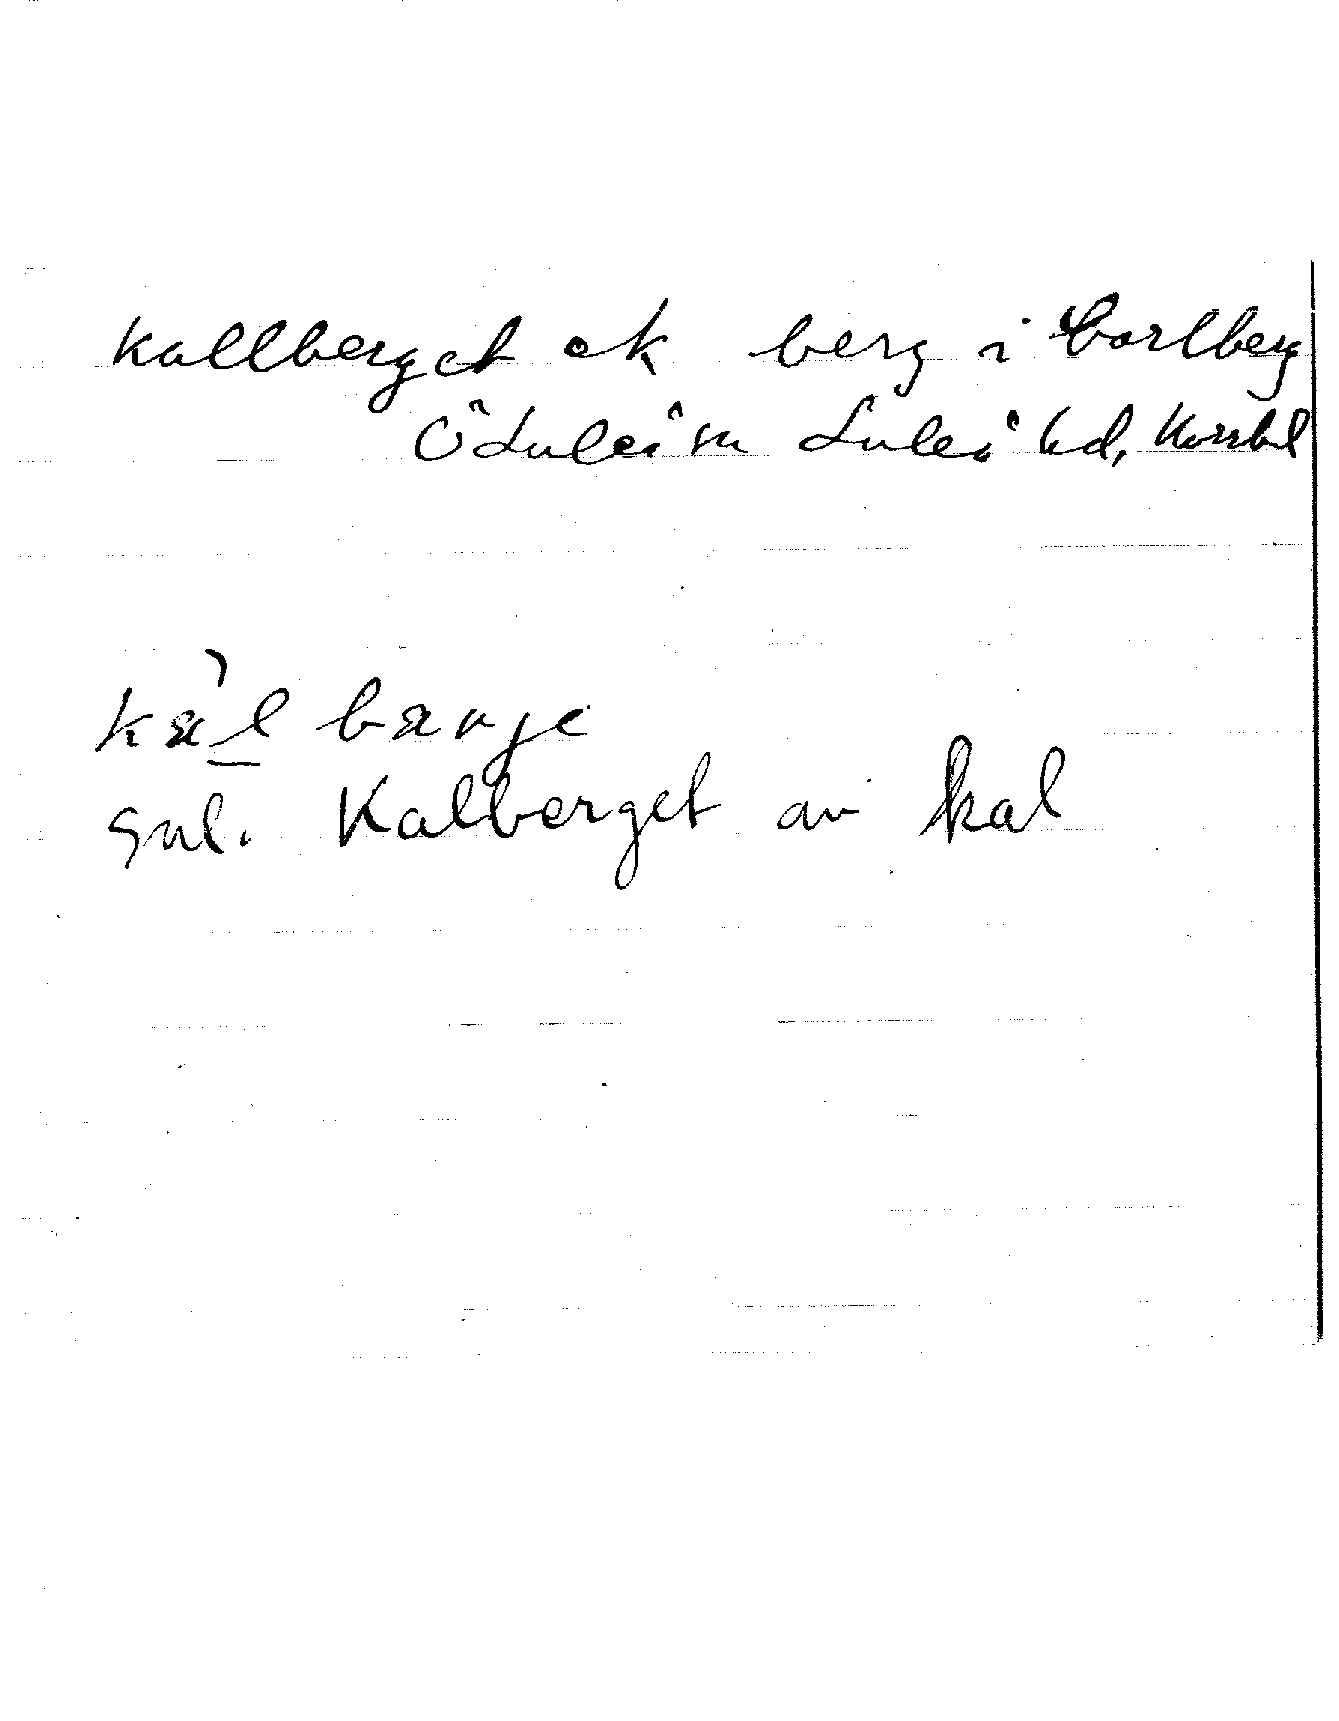 Kallberget ek berg i Carlberg
ÖLuleå sn Luleå td, Norrbl
kæ̀l bærje
snl. Kalberget av kal